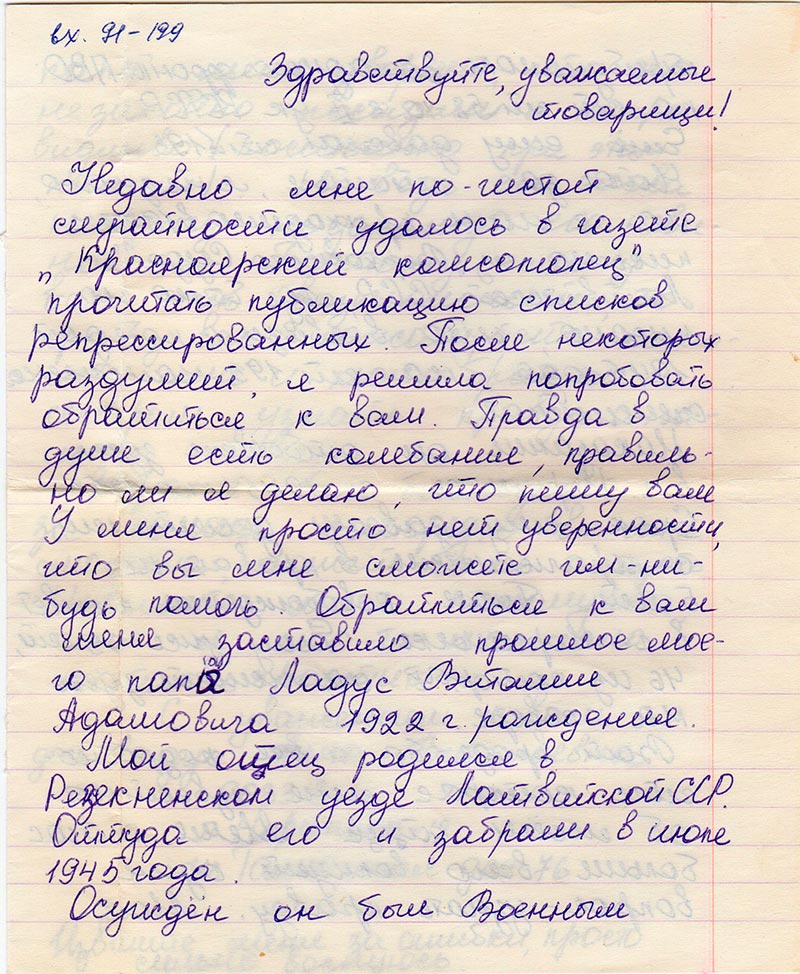 вх. 91-199
Здравствуйте, уважаемые
товарищи!
Недавно мне по-чистой
случайности удалось в газете
„Красноярский комсомолец"
прочитать публикацию списков
репрессированных. После некоторых
раздумий, я решила попробовать
обратиться к вам. Правда в
душе есть колебания, правиль-
но ли я делаю, что пишу вам
У меня просто нет уверенности,
что вы мне сможете чем-ни-
будь помочь Обратиться к вам
меня заставило прошлое мое-
го папа Ладус Виталия
Адамовича 1922 г. рождения.
Мой отец родился в
Резекненском уезде Латвийской ССР.
Оттуда его и забрали в июле
1945 года.
Осуждён он был Военным